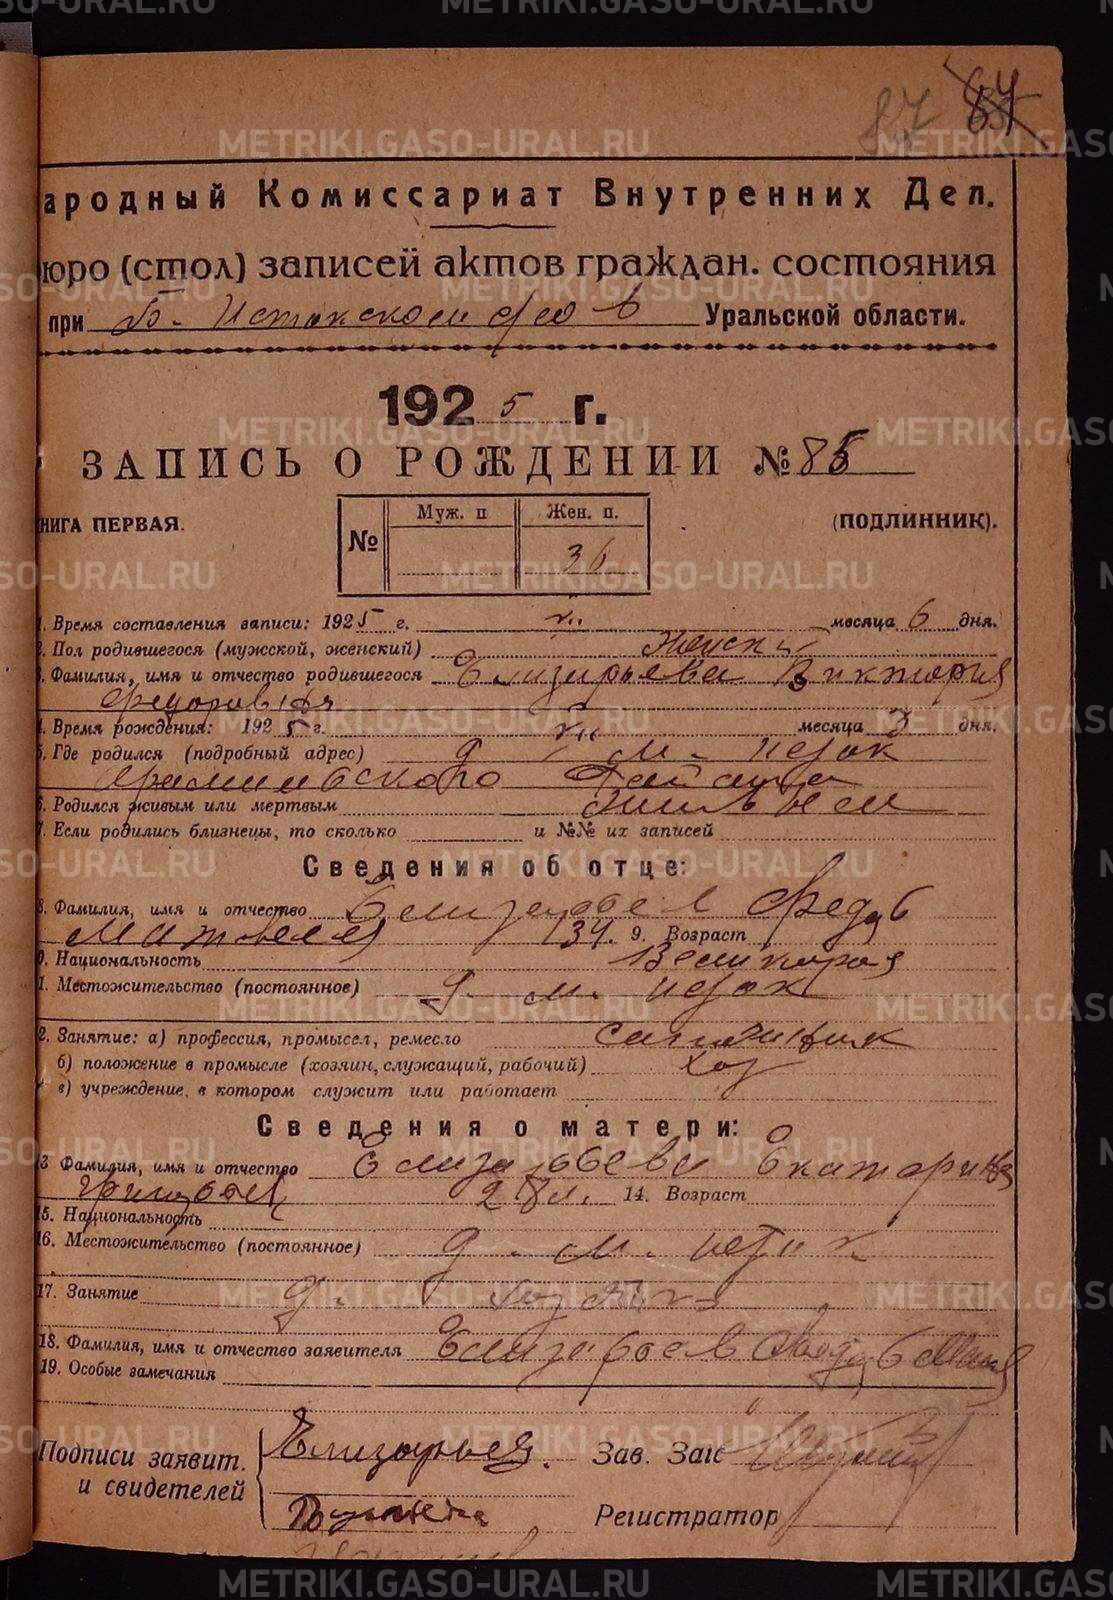 87 87
ародный Комиссариат Внутренних Дел.
юро (стол) записей актов граждан. состояния
при Б. Истокском Уральской области.
1925 г.
ЗАПИСЬ О РОЖДЕНИИ № 85
НИГА ПЕРВАЯ. (ПОДЛИННИК).
№ Муж. п Жен. п.
36
1. Время составления записи: 1925 г. VII месяца 6 дня.
2. Пол родившегося (мужской, женский) Женски
3. Фамилия, имя и отчество родившегося Елизарьева Виктория
Федоровна
4. Время рождения: 1925 г. VII месяца 3 дня.
5. Где родился (подробный адрес) д М-Исток
Арамильского Района
6. Родился живым или мертвым живым
7. Если родились близнецы, то сколько и №№ их записей
Сведения об отце:
8. Фамилия, имя и отчество Елизарьев Федор
Матвеев 34. 9. Возраст
0. Национальность Великорос
1. Местожительство (постоянное) д. М. Исток
2. Занятие: а) профессия, промысел, ремесло сапожник
б) положение в промысле (хозяин, служащий, рабочий) хоз
в) учреждение, в котором служит или работает
Сведения о матери:
13 Фамилия, имя и отчество Елизарьева Екатерина
28 л. 14. Возраст
15. Национальность
16. Местожительство (постоянное) д. М. Исток
17. Занятие д. хозяйка
18. Фамилия, имя и отчество заявителя Елизарьев Федор
19. Особые замечания
Подписи заявит. Елизарьев. Зав. Загс
и свидетелей
Регистратор
METRIKI.GASO-URAL.RU